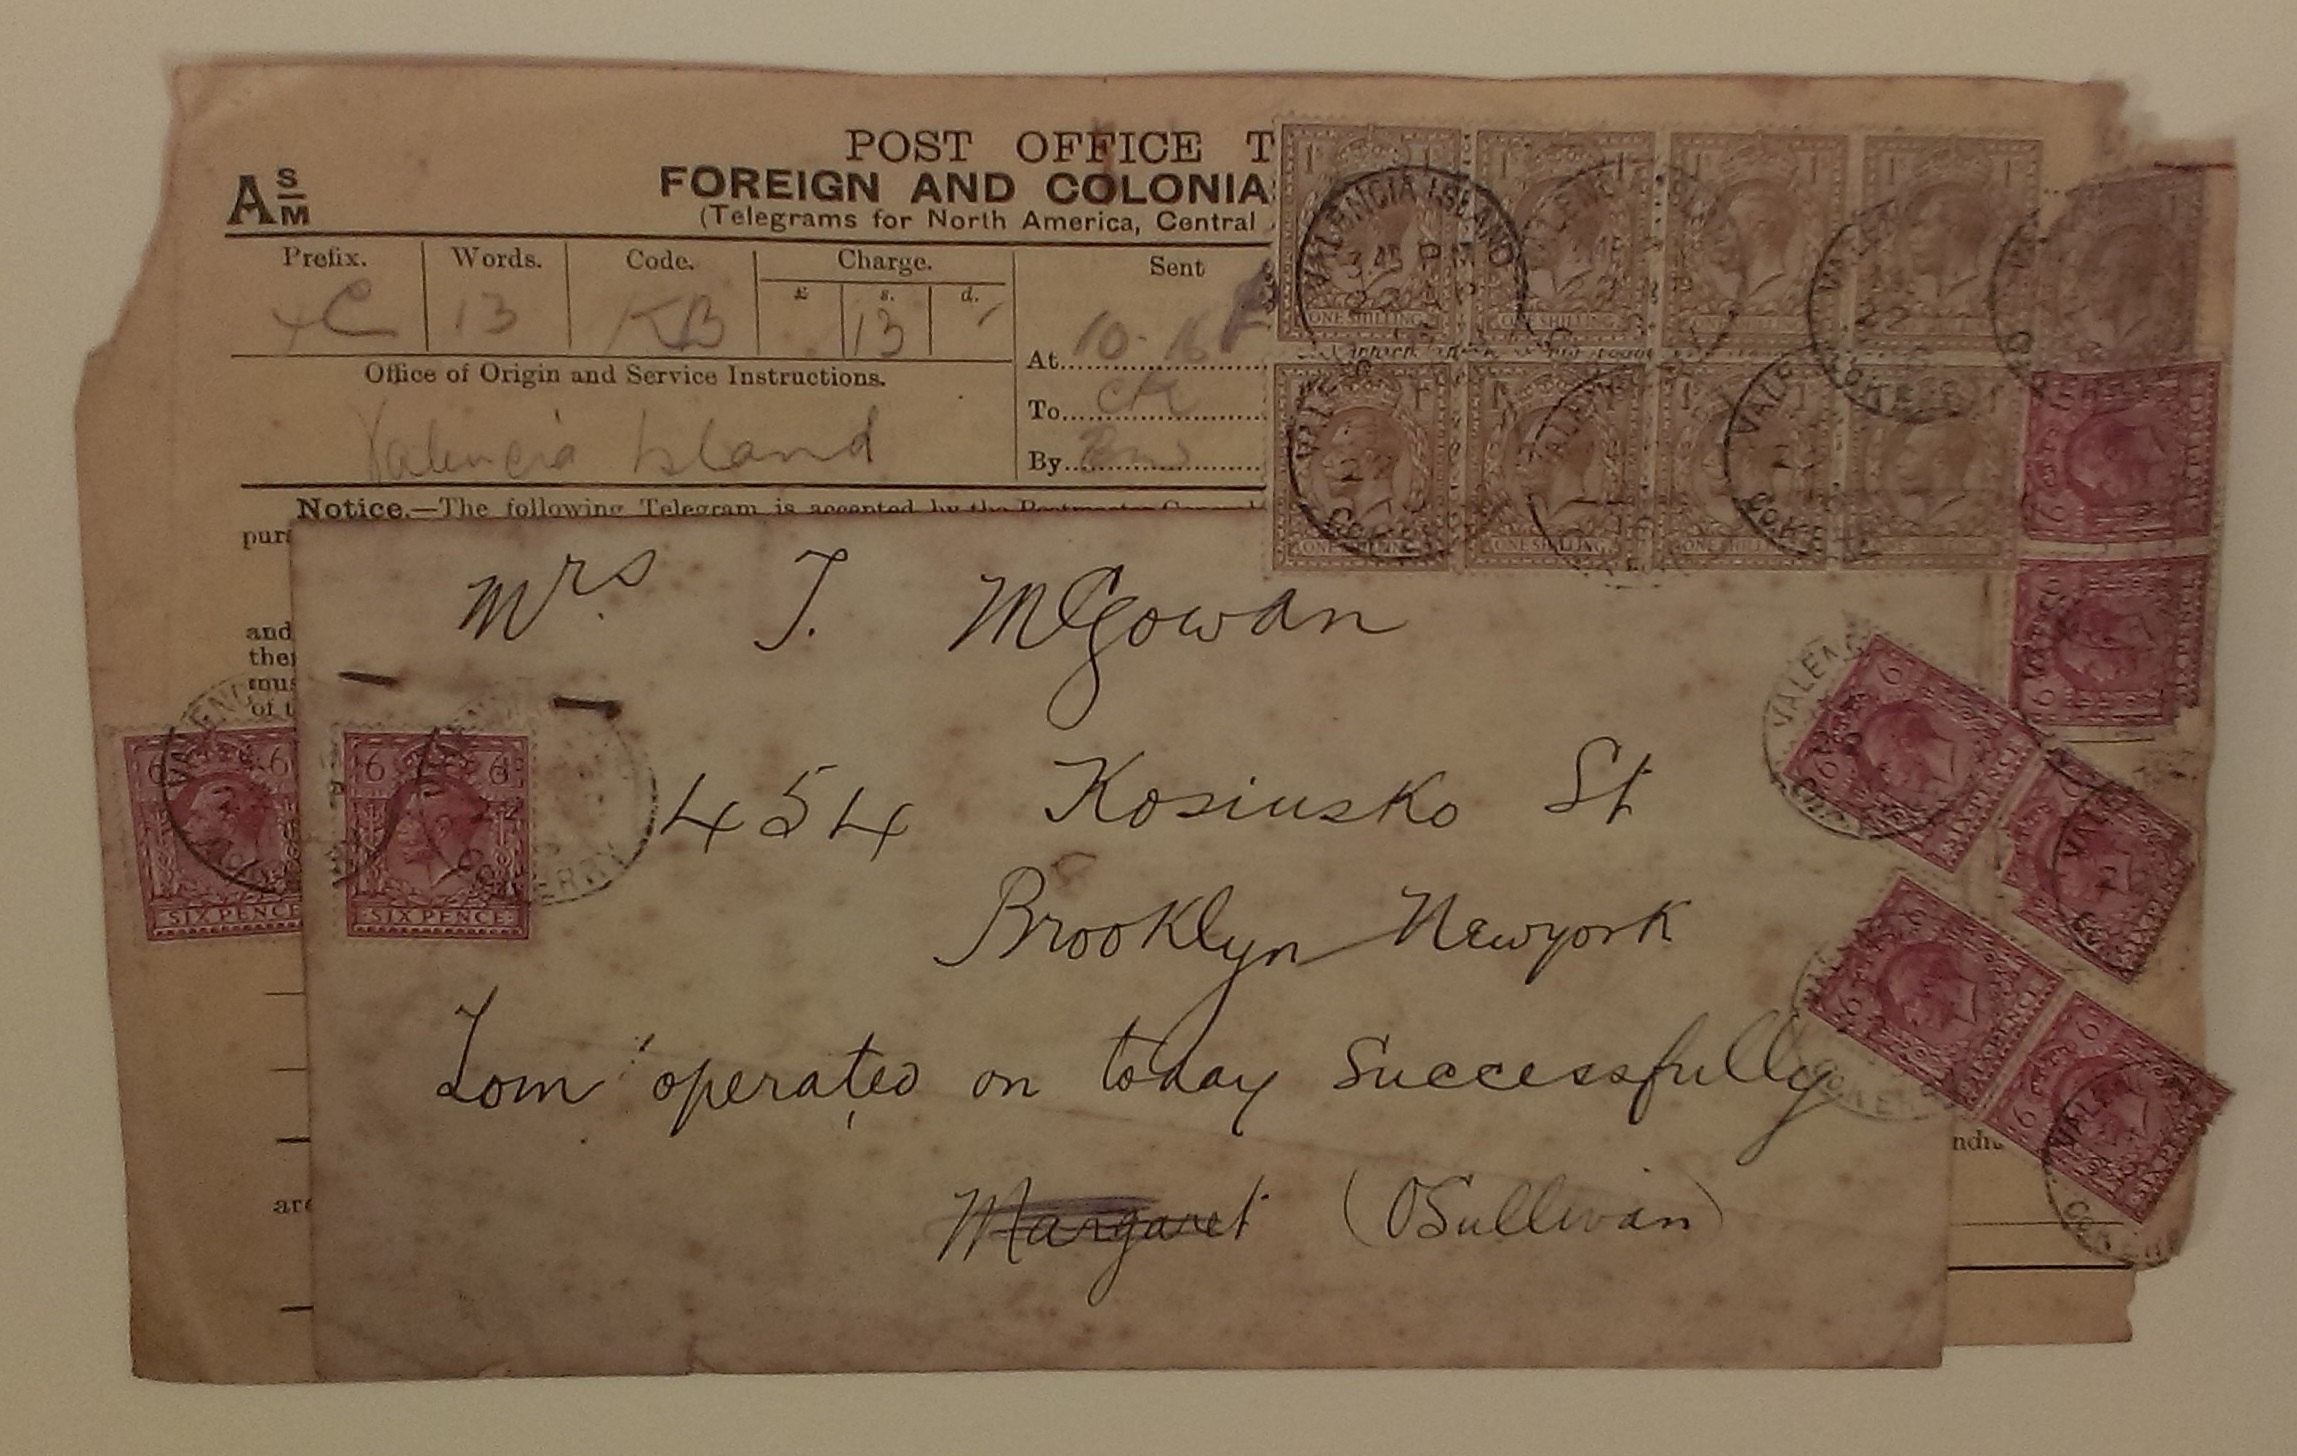 POST OFFICE T
A S M
FOREIGN AND COLONIA
(Telegrams for North America, Central
Prefix. Words. Code. Charge. Sent
£ s. d.
13 KB 13
At 10-16
Office of Origin and Service Instructions.
To CK
Valencia Island
By
Notice.—The following Telegram is accepted by the Postmaster General
pur
and
the
mus
of t
Mrs T. McGowan
454 Kosiusko St
Brooklyn Newyork
Tom operated on today Successfully
Margaret (OSullivan)
are
VALENCIA ISLAND
3.45 PM
22
CO KERRY
ONE SHILLING
ONE SHILLING
ONE SHILLING
ONE SHILLING
ONE SHILLING
ONE SHILLING
SIX PENCE
SIX PENCE
SIX PENCE
SIX PENCE
SIX PENCE
SIX PENCE